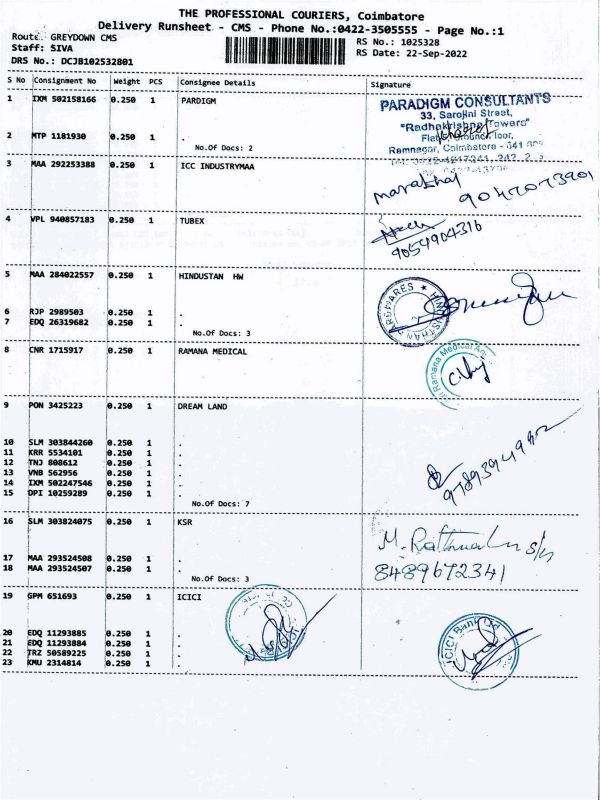 THE PROFESSIONAL COURIERS, Coimbatore
Delivery Runsheet - CMS - Phone No.:0422-3505555 - Page No.:1
Route: GREYDOWN CMS
RS No.: 1025328
Staff: SIVA
RS Date: 22-Sep-2022
DRS No.: DCJB102532801
S No Consignment No Weight PCS Consignee Details Signature
1 IXM 502158166 0.250 1 PARDIGM
PARADIGM CONSULTANTS
33, Sarojini Street,
"Radhakrishna Towers"
2 MTP 1181930 0.250 1 .
Floor,
No.Of Docs: 2
Ramnagar, Coimbatore - 641
3 MAA 292253388 0.250 1 ICC INDUSTRYMAA
4 VPL 940857183 0.250 1 TUBEX
9054904316
5 MAA 284022557 0.250 1 HINDUSTAN HW
HINDUSTHAN HARDWARES
6 RJP 2989503 0.250 1 .
7 EDQ 26319682 0.250 1 .
No.Of Docs: 3
8 CNR 1715917 0.250 1 RAMANA MEDICAL
Sri Ramana Medical
9 PON 3425223 0.250 1 DREAM LAND
10 SLM 303844260 0.250 1 .
11 KRR 5534101 0.250 1 .
12 TNJ 808612 0.250 1 .
13 VNB 562956 0.250 1 .
14 IXM 502247546 0.250 1 .
15 OPI 10259289 0.250 1 .
No.Of Docs: 7
16 SLM 303824075 0.250 1 KSR
17 MAA 293524508 0.250 1 .
18 MAA 293524507 0.250 1 .
8489672341
No.Of Docs: 3
19 GPM 651693 0.250 1 ICICI
ICICI Bank Ltd
20 EDQ 11293885 0.250 1 .
21 EDQ 11293884 0.250 1 .
22 TRZ 50589225 0.250 1 .
23 KMU 2314814 0.250 1 .